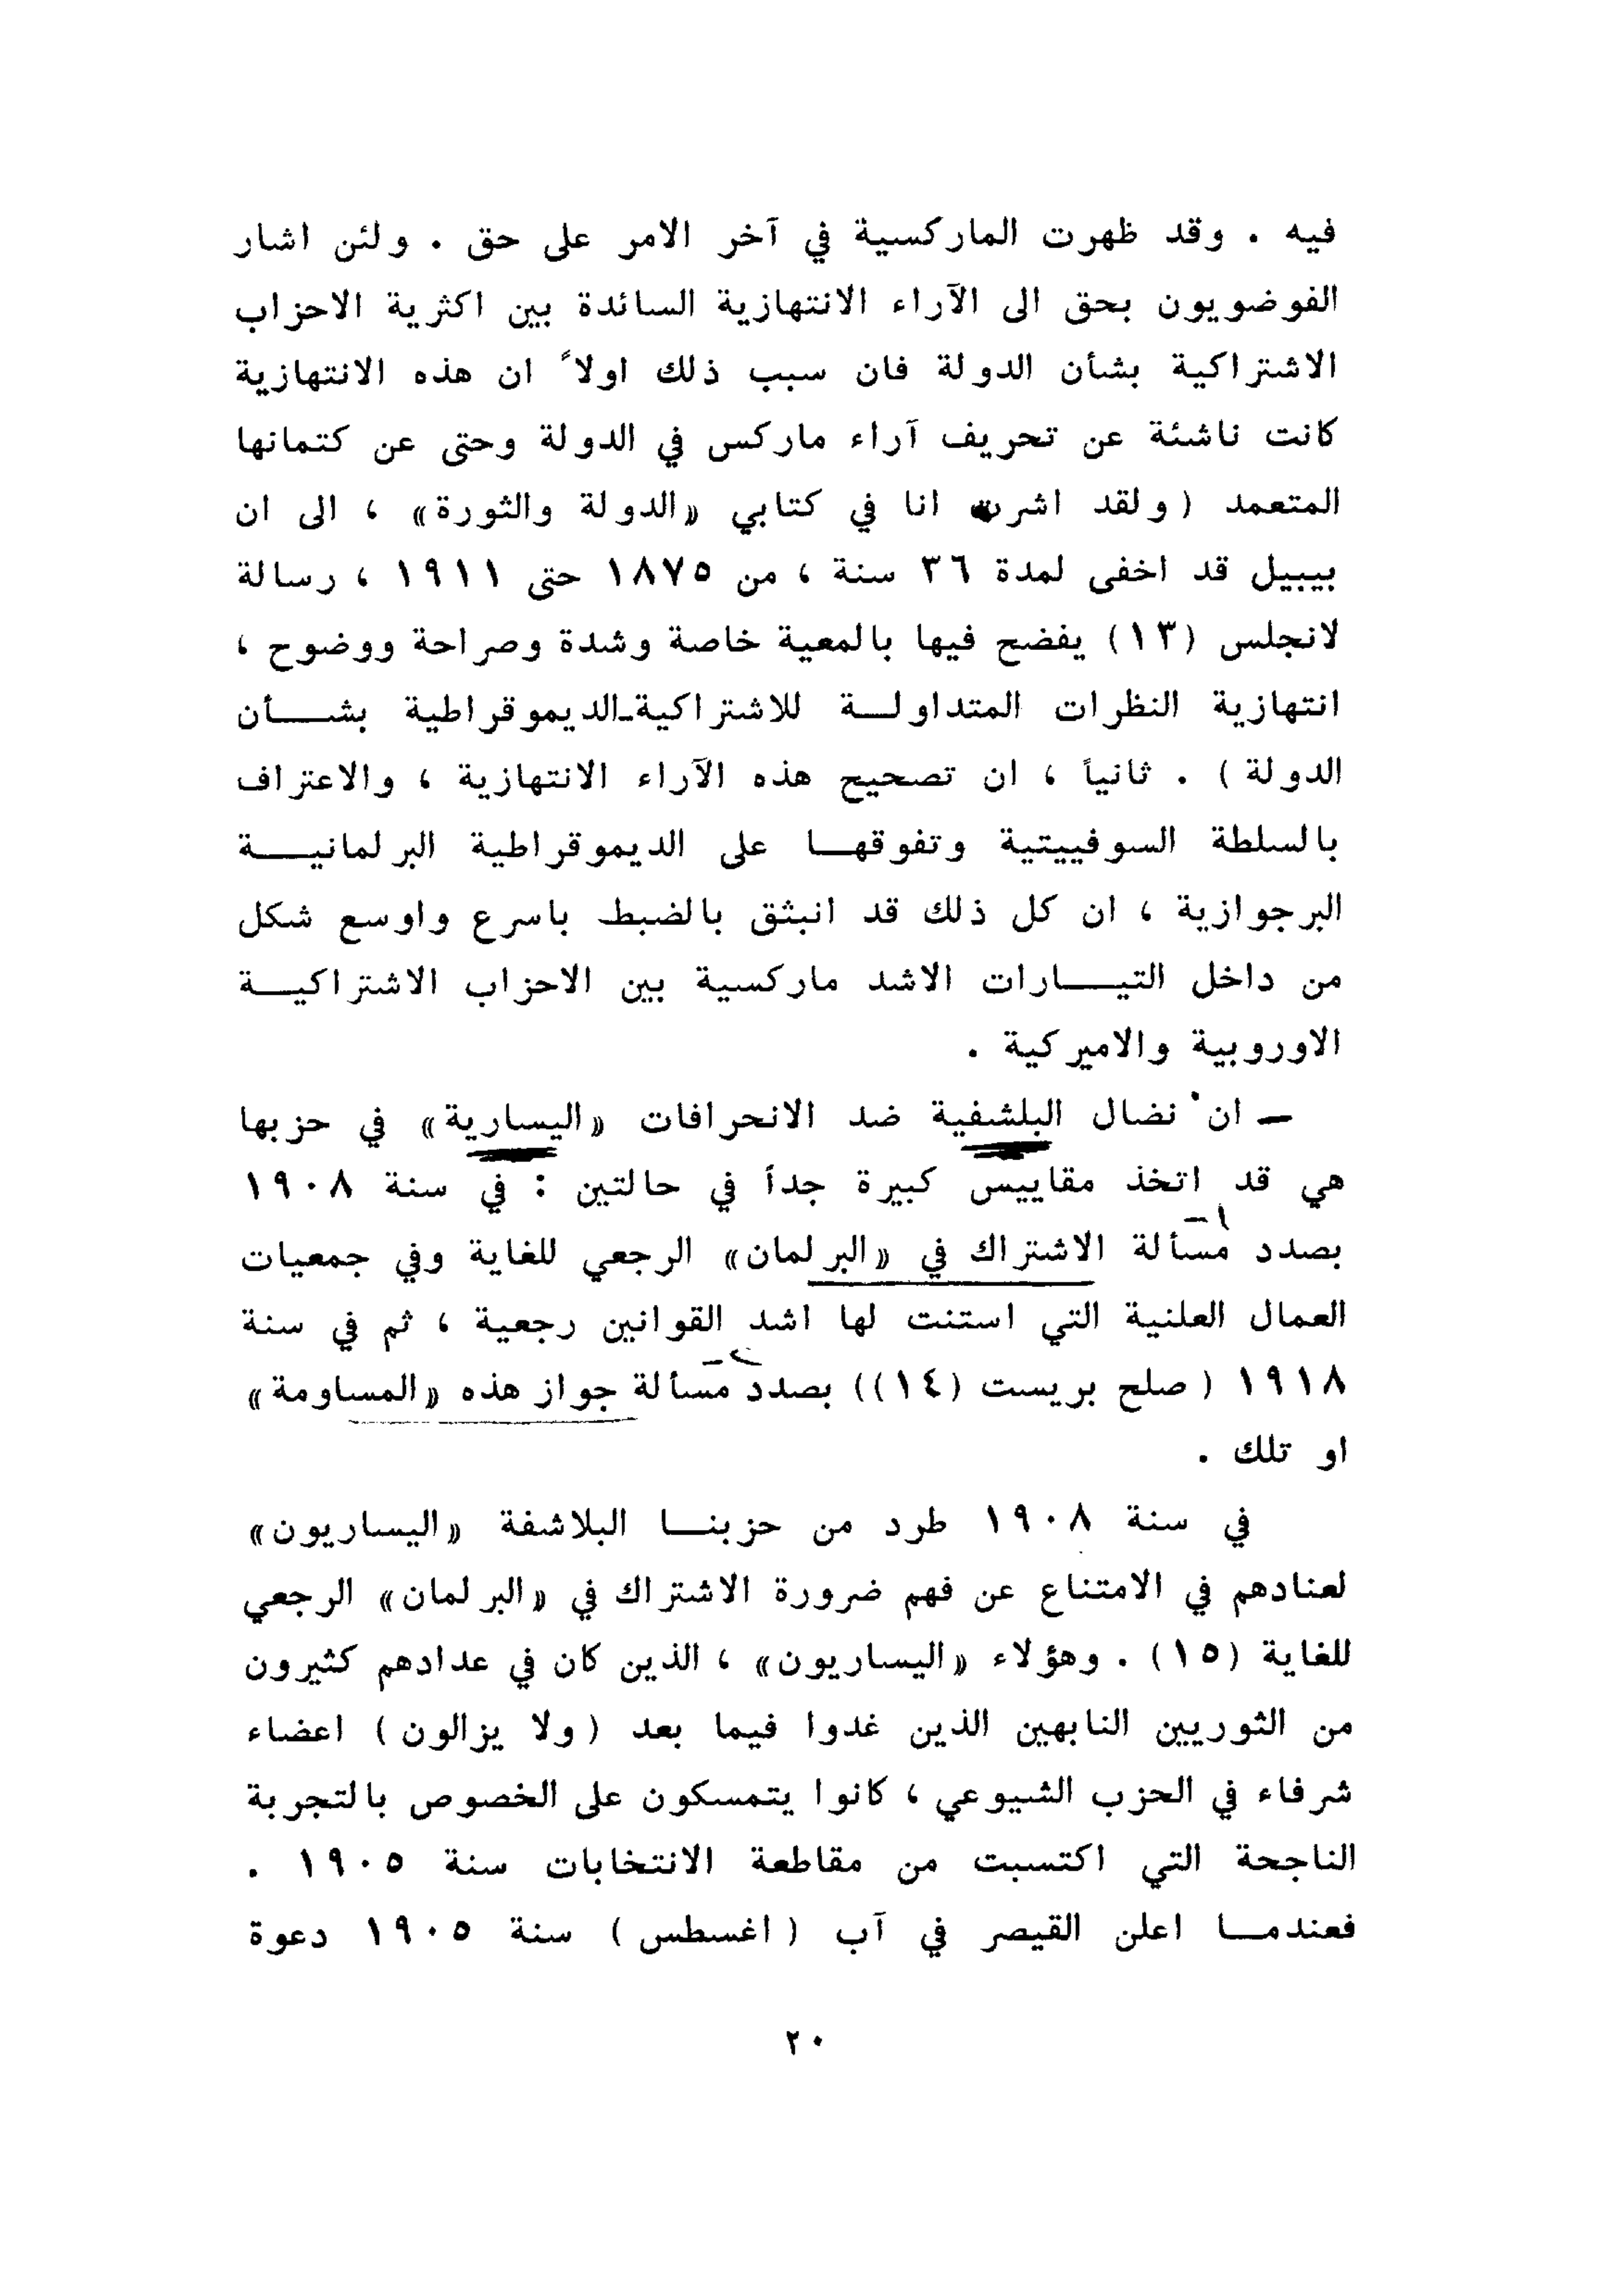 فيه . وقد ظهرت الماركسية في آخر الامر على حق . ولئن اشار
الفوضويون بحق الى الآراء الانتهازية السائدة بين اكثرية الاحزاب
الاشتراكية بشأن الدولة فان سبب ذلك اولاً ان هذه الانتهازية
كانت ناشئة عن تحريف آراء ماركس في الدولة وحتى عن كتمانها
المتعمد (ولقد اشرت انا في كتابي «الدولة والثورة» ، الى ان
بيبيل قد اخفى لمدة ٣٦ سنة ، من ١٨٧٥ حتى ١٩١١ ، رسالة
لانجلس (١٣) يفضح فيها بالمعية خاصة وشدة وصراحة ووضوح ،
انتهازية النظرات المتداولة للاشتراكية-الديموقراطية بشأن
الدولة) . ثانياً ، ان تصحيح هذه الآراء الانتهازية ، والاعتراف
بالسلطة السوفييتية وتفوقها على الديموقراطية البرلمانية
البرجوازية ، ان كل ذلك قد انبثق بالضبط باسرع واوسع شكل
من داخل التيارات الاشد ماركسية بين الاحزاب الاشتراكية
الاوروبية والاميركية .
— ان نضال البلشفية ضد الانحرافات «اليسارية» في حزبها
هي قد اتخذ مقاييس كبيرة جداً في حالتين : في سنة ١٩٠٨
١-
بصدد مسألة الاشتراك في «البرلمان» الرجعي للغاية وفي جمعيات
العمال العلنية التي استنت لها اشد القوانين رجعية ، ثم في سنة
١٩١٨ (صلح بريست (١٤)) بصدد مسألة جواز هذه «المساومة»
او تلك .
في سنة ١٩٠٨ طرد من حزبنا البلاشفة «اليساريون»
لعنادهم في الامتناع عن فهم ضرورة الاشتراك في «البرلمان» الرجعي
للغاية (١٥) . وهؤلاء «اليساريون» ، الذين كان في عدادهم كثيرون
من الثوريين النابهين الذين غدوا فيما بعد (ولا يزالون) اعضاء
شرفاء في الحزب الشيوعي ، كانوا يتمسكون على الخصوص بالتجربة
الناجحة التي اكتسبت من مقاطعة الانتخابات سنة ١٩٠٥ .
فعندما اعلن القيصر في آب (اغسطس) سنة ١٩٠٥ دعوة
٢٠